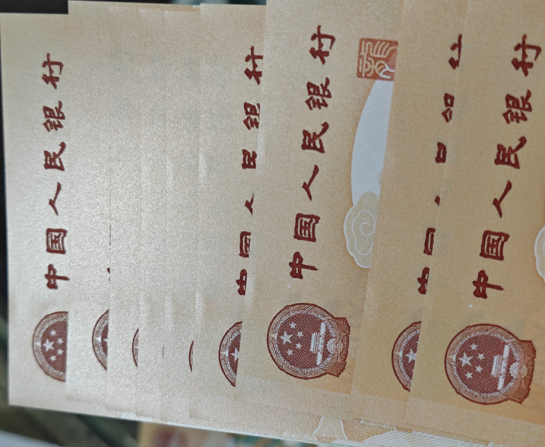 中国人民银行
中国人民银行
中国人民银行
中国人民银行
中国人民银行